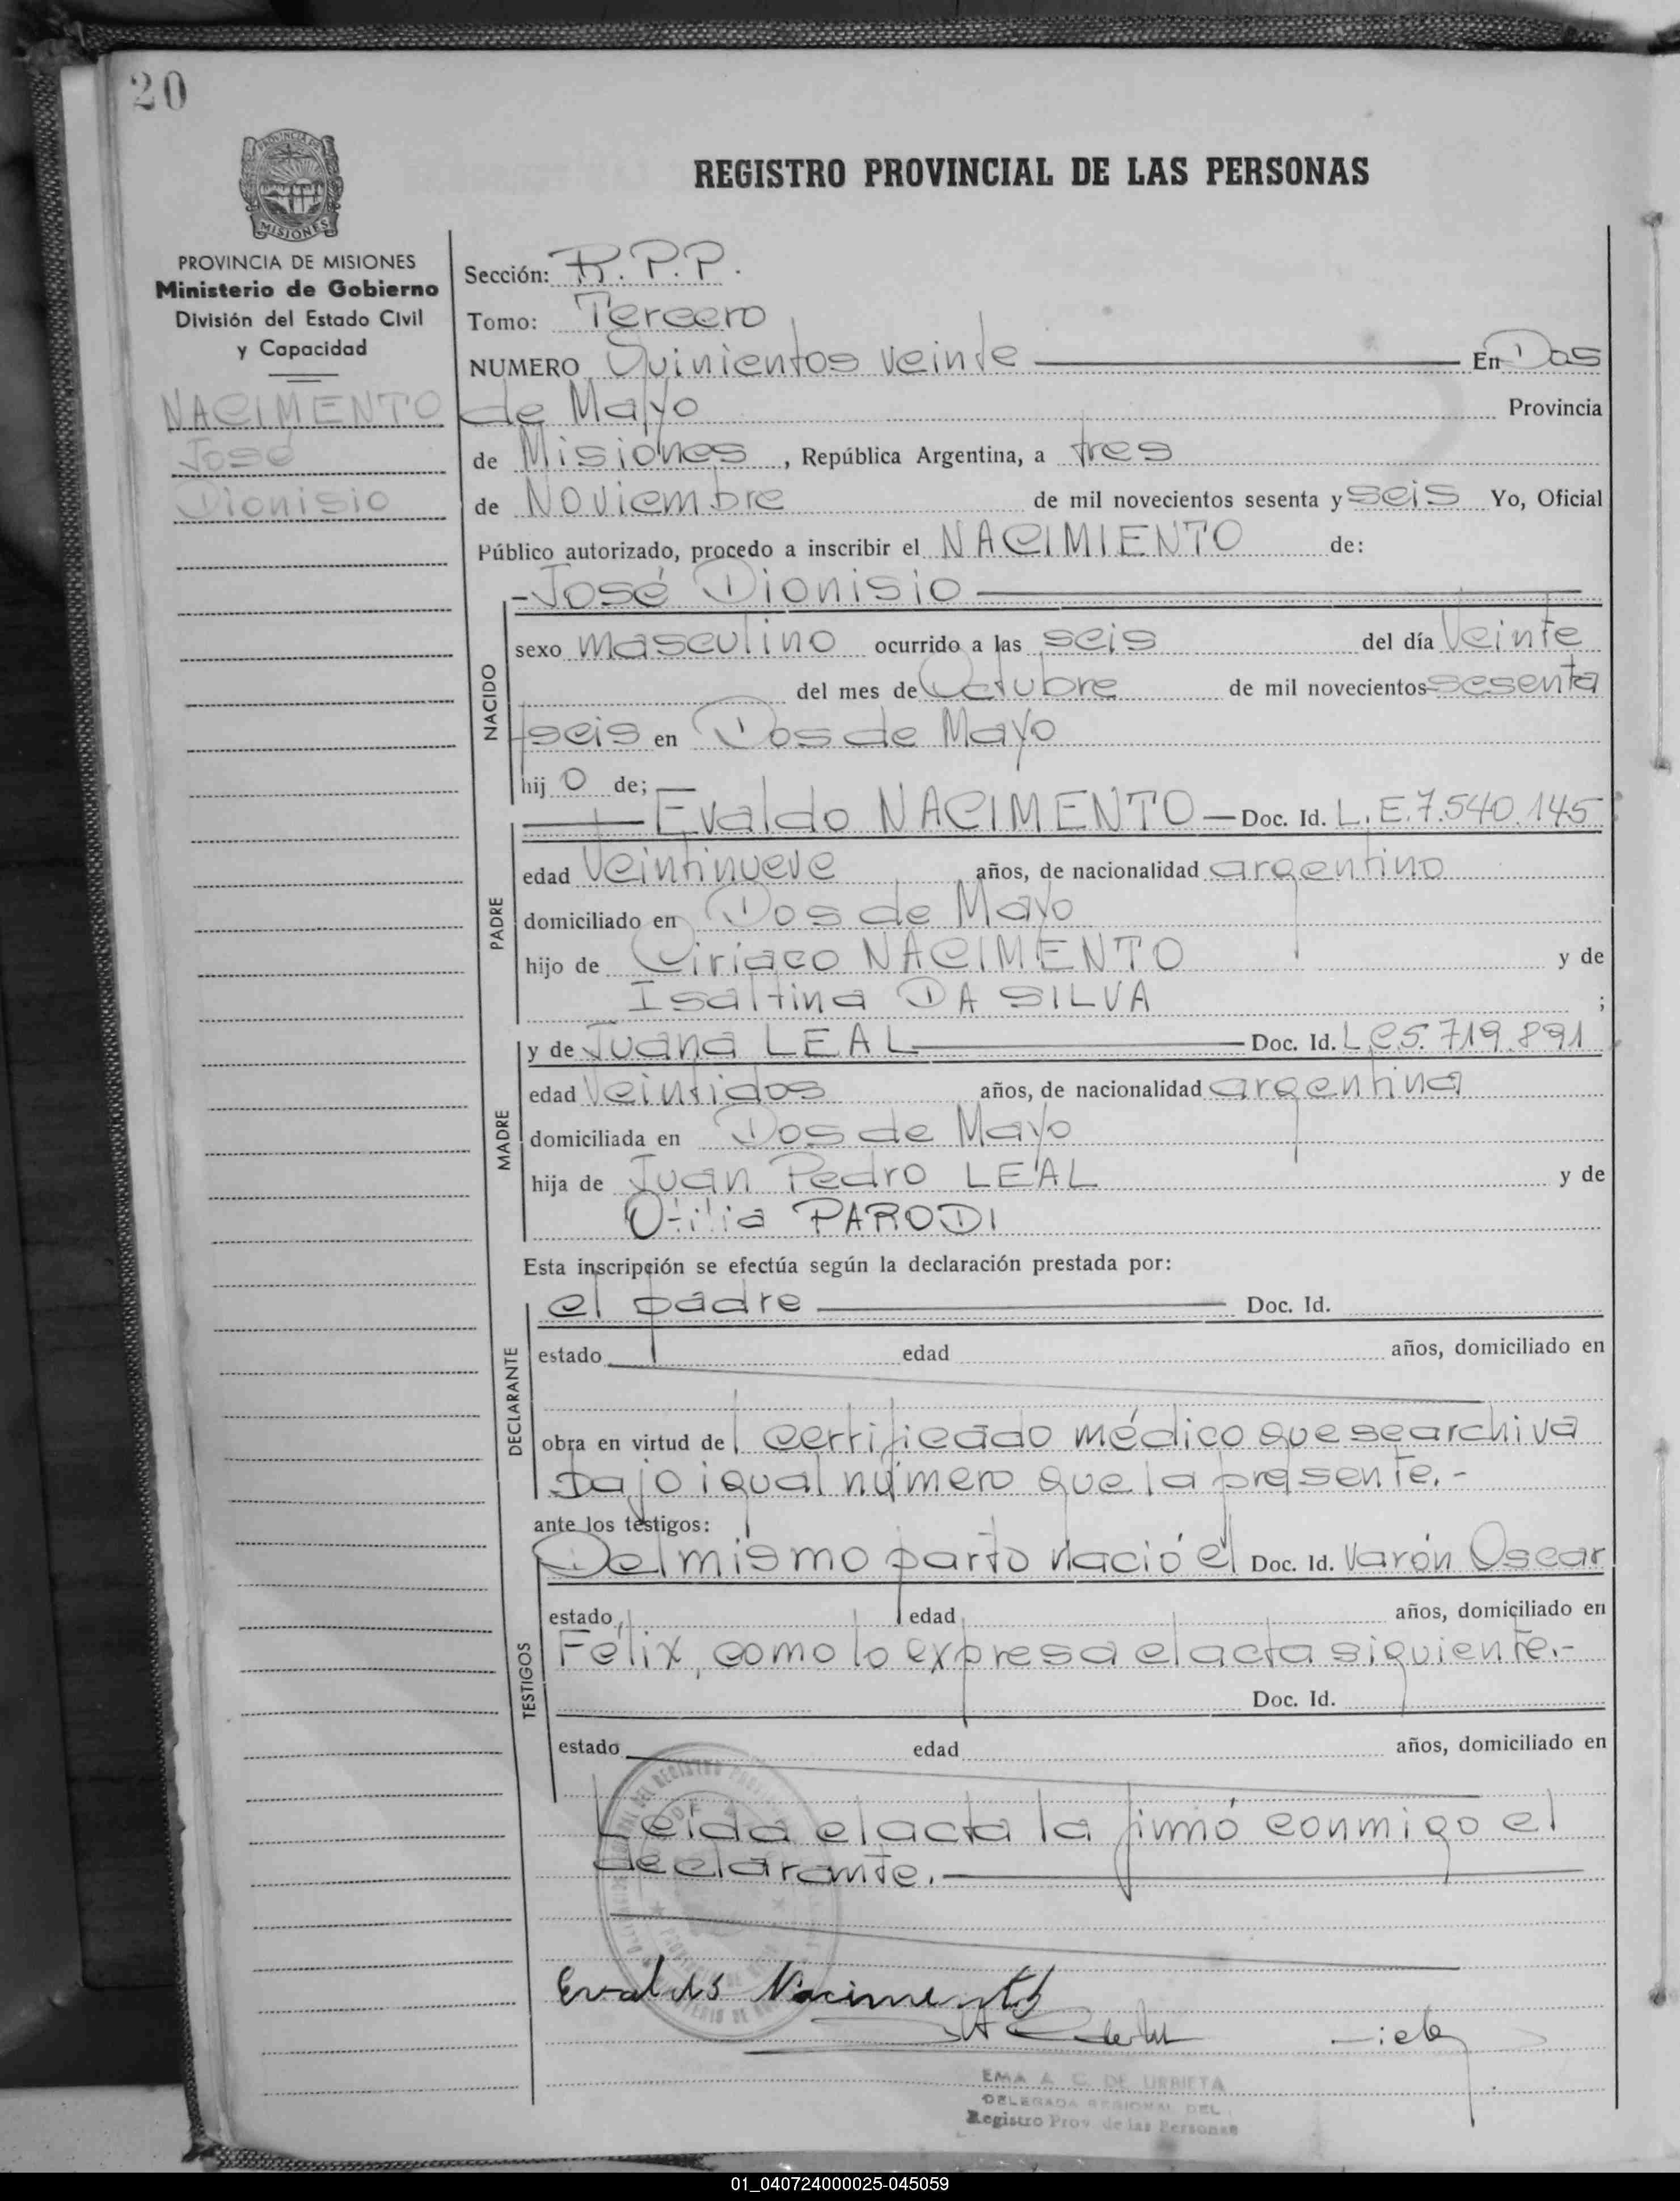 20
REGISTRO PROVINCIAL DE LAS PERSONAS
PROVINCIA DE MISIONES
Ministerio de Gobierno
División del Estado Civil
y Capacidad
NACIMENTO
José
Dionisio
Sección: R.P.P.
Tomo: Tercero
NUMERO Quinientos veinte En Dos
de Mayo Provincia
de Misiones, República Argentina, a tres
de Noviembre de mil novecientos sesenta y seis Yo, Oficial
Público autorizado, procedo a inscribir el NACIMIENTO de:
-José Dionisio
NACIDO
sexo masculino ocurrido a las seis del día Veinte
del mes de Octubre de mil novecientos sesenta
y seis en Dos de Mayo
hij o de;
PADRE
Evaldo NACIMENTO — Doc. Id. L.E.7.540.145
edad veintinueve años, de nacionalidad argentino
domiciliado en Dos de Mayo
hijo de Ciriaco NACIMENTO y de
Isaltina DA SILVA ;
MADRE
y de Juana LEAL Doc. Id. LC5.719.891
edad Veintidos años, de nacionalidad argentina
domiciliada en Dos de Mayo
hija de Juan Pedro LEAL y de
Otilia PARODI
Esta inscripción se efectúa según la declaración prestada por:
DECLARANTE
el padre Doc. Id.
estado edad años, domiciliado en
obra en virtud del certificado médico que se archiva
bajo igual número que la presente.-
ante los testigos:
TESTIGOS
Del mismo parto nació el Doc. Id. varón Oscar
estado edad años, domiciliado en
Félix, como lo expresa el acta siguiente.-
Doc. Id.
estado edad años, domiciliado en
Leída el acta la firmó conmigo el
declarante.
Evaldo Nacimento
EMA A. C. DE URRIETA
DELEGADA REGIONAL DEL
Registro Prov. de las Personas
01_040724000025-045059